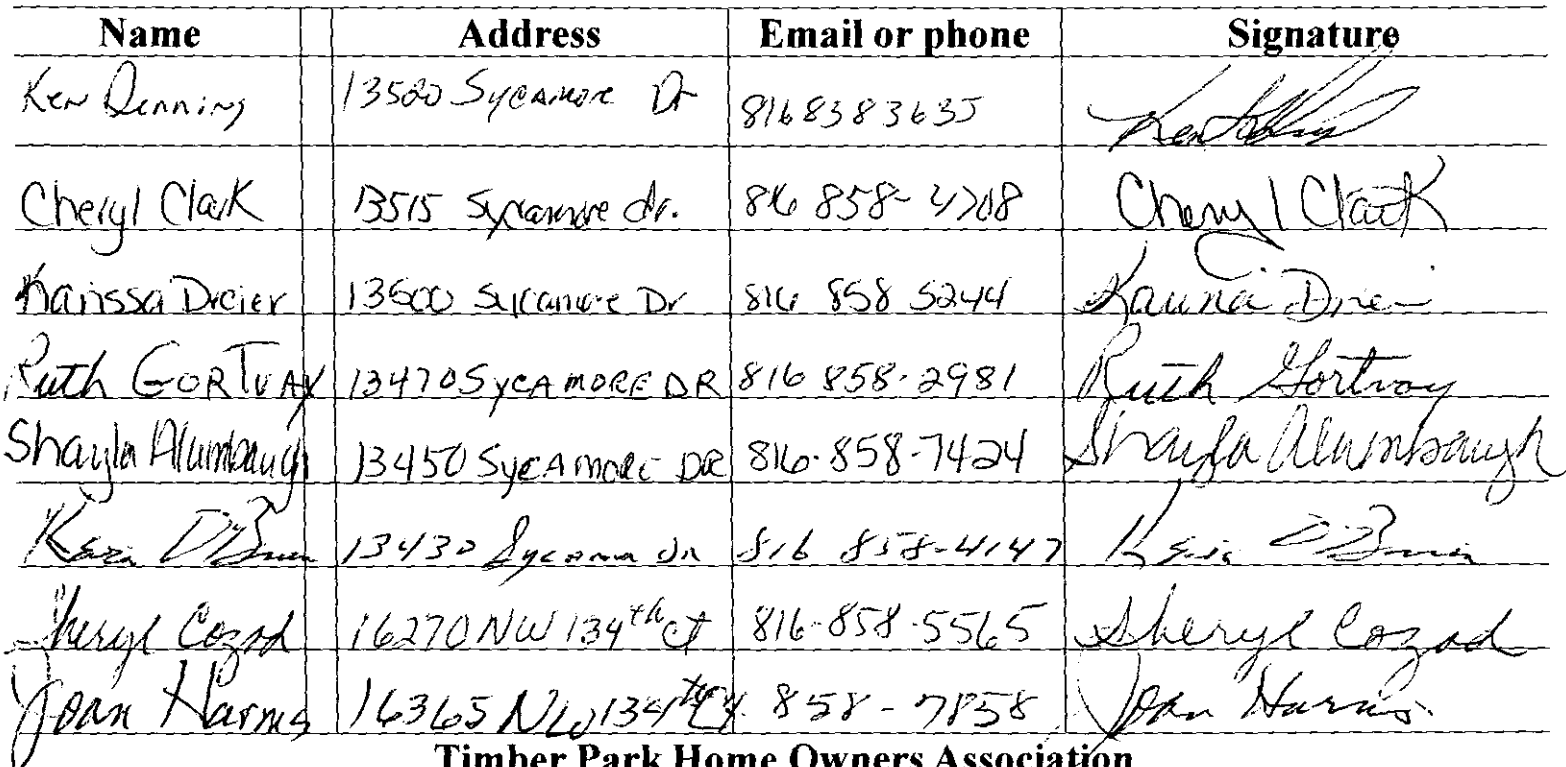 Name Address Email or phone Signature
Ken Denning 13520 Sycamore Dr 8168383635 Ken
Cheryl Clark 13515 Sycamore dr. 816 858-4708 Cheryl Clark
Karissa Dreier 13500 Sycamore Dr 816 858 5244
Ruth GORTVAY 13470 SYCAMORE DR 816 858-2981 Ruth Gortvay
Shayla Alumbaugh 13450 SYCAMORE DR 816-858-7424 Shayla Alumbaugh
13430 816 858-4147
Sheryl Cozad 16270 NW 134th Ct 816-858-5565 Sheryl Cozad
Joan Harms 16365 NW 134th Ct. 858-7858 Joan Harms
Timber Park Home Owners Association